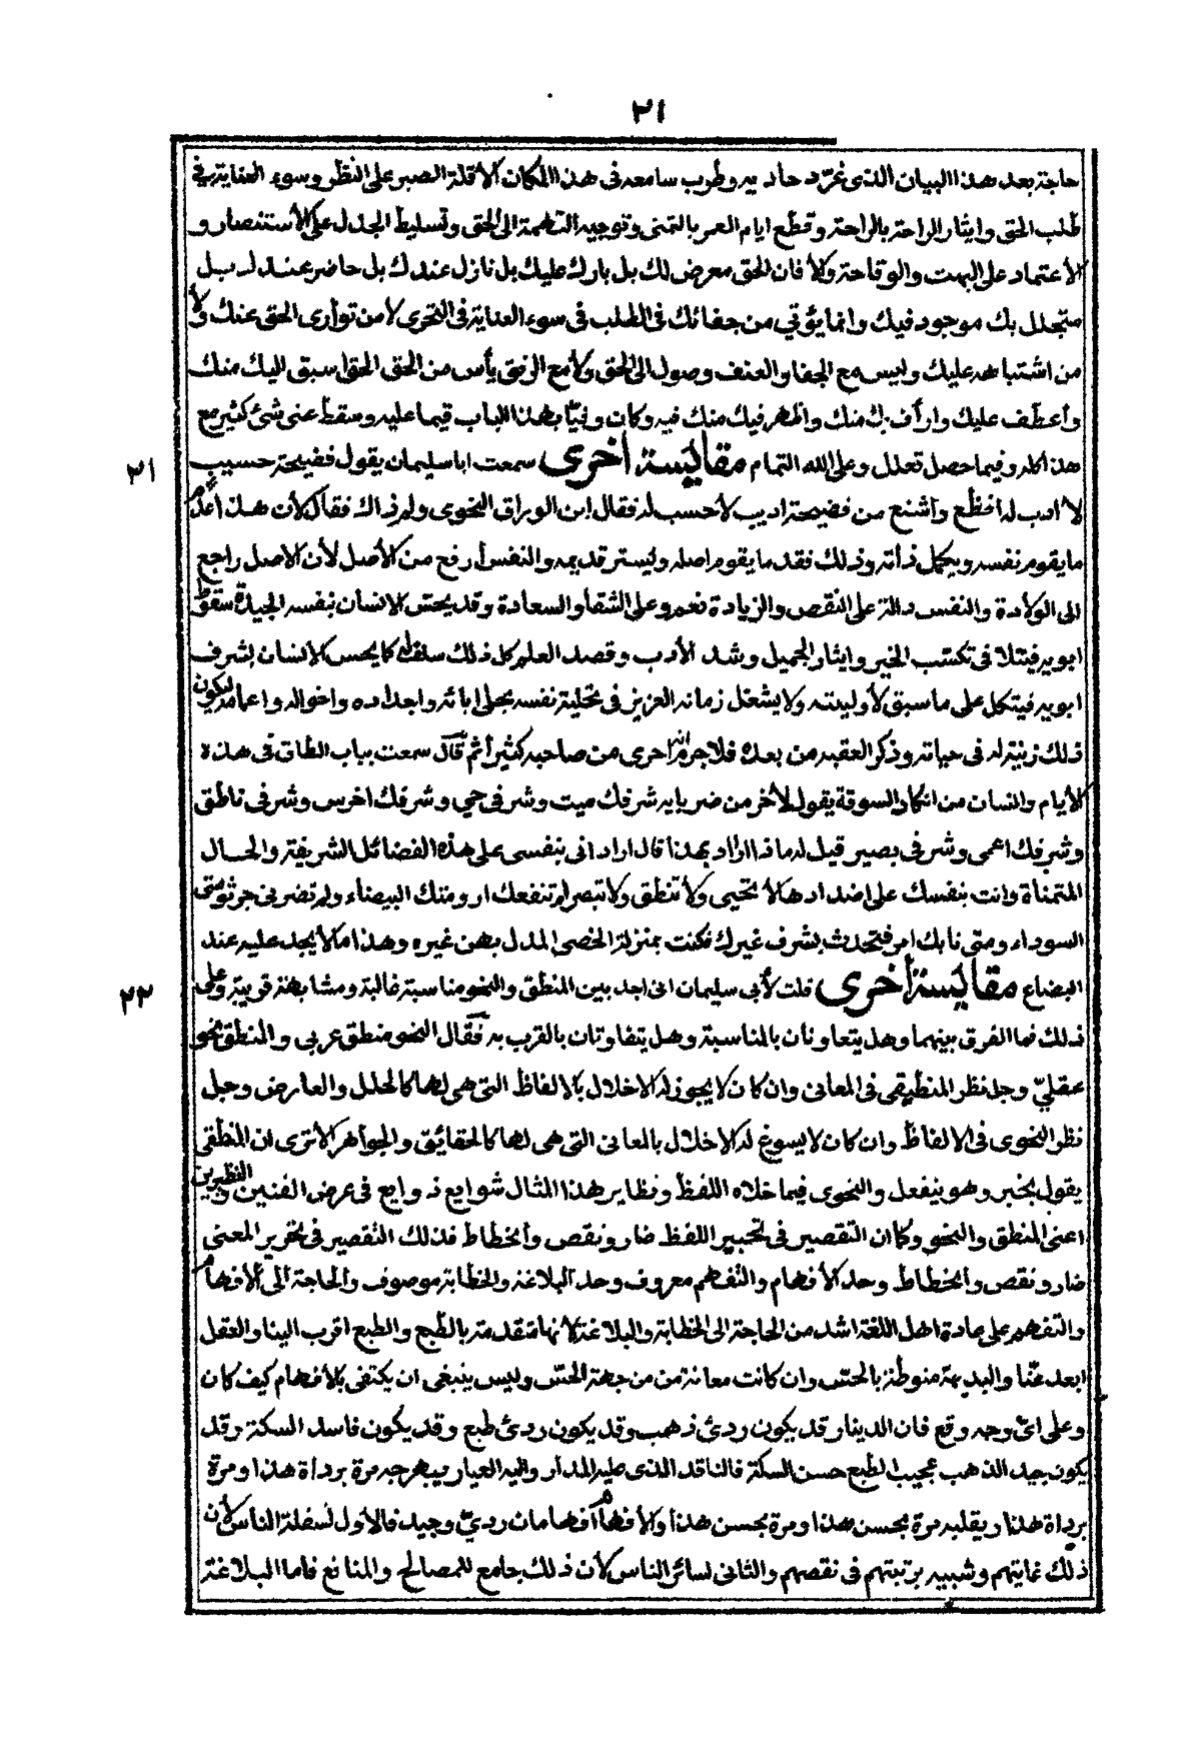 ٢١
حاجة بعد هذا البيان الذى غرّد حاديه وطرب سامعه فى هذا المكان الا قلة الصبر على النظر وسوء العناية فى
طلب الحق وايثار الراحة بالراحة وقطع ايام العمر بالتمنى وتوجيه التهمة الى الحق وتسليط الجدل على الأستنصار و
الأعتماد على البهت والوقاحة والا فان الحق معرض لك بل بارك عليك بل نازل عندك بل حاضر عندك بل
متجلل بك موجود فيك وانما يؤتي من جفائك فى الطلب فى سوء العناية فى التحرى لا من توارى الحق عنك ولا
من اشتباهه عليك وليس مع الجفا والعنف وصول الى الحق ولا مع الرفق يأس من الحق الحق اسبق اليك منك
وأعطف عليك وارأف بك منك واظهر فيك منك فيه وكان وفيّا بهذا الباب قيما عليه وسقط عنى شئ كثير مع
هذا كله وفيما حصل تعلل وعلى الله التمام مقايسة أخرى سمعت ابا سليمان يقول فضيحة حسيب
٢١
لا ادب له افظع وأشنع من فضيحة اديب لا حسب له فقال ابن الوراق النحوى ولم ذاك فقال لأن هذا اعدم
ما يقوم نفسه ويجمل ذاته وذلك فقد ما يقوم اصله وليستر قديمه والنفس أرفع من الأصل لأن الاصل راجع
الى الولادة والنفس دالة على النقص والزيادة نعم وعلى الشقا والسعادة وقد يحسّ الانسان بنفسه الجيدة سقوط
ابويه فيتلا فى تكسّب الخير وايثار الجميل وشد الأدب وقصد العلم كل ذلك سلفه كما يحس الانسان بشرف
ابويه فيتكل على ما سبق لأوليته ولا يشغل زمانه العزيز فى تحلية نفسه بحلى ابائه واجداده واخواله واعمامه ليكون
ذلك زينة له فى حياته وذكر العقبه من بعده فلا جرم انه احرى من صاحبه كثيرا ثم قال سمعت بباب الطاق فى هذه
الأيام وانسان من انكاد السوقة يقول لأخر من ضربايه شرفك ميت وشرفى حي وشرفك اخرس وشرفى ناطق
وشرفك اعمى وشرفى بصير قيل له ماذا اراد بهذا قال اراد انى بنفسى على هذه الفضائل الشريفة والحال
المتمناة وانت بنفسك على اضدادها لا تحيى ولا تنطق ولا تبصر لم تنفعك ارومتك البيضاء ولم تضرنى جرثومتى
السوداء ومتى نابك امر فتحدث بشرف غيرك فكنت بمنزلة الخصى المدل بهن غيره وهذا ما لا يجد عليه عند
البضاع مقايسة أخرى قلت لأبى سليمان انى اجد بين المنطق والنحو مناسبة غالبة ومشابهة قريبة وعلى
٢٢
ذلك فما الفرق بينهما وهل يتعاونان بالمناسبة وهل يتفاوتان بالقرب به فقال النحو منطق عربى والمنطق نحو
عقليّ وجل نظر المنطيقى فى المعانى وان كان لا يجوز له الاخلال بالالفاظ التى هى لها كالحلل والعارض وجل
نظر النحوى فى الالفاظ وان كان لا يسوغ له الاخلال بالمعانى التى هى لها كالحقائق والجواهر الا ترى ان المنطقى
يقول بخبر وهو ينفعل والنحوى فيما خلاه اللفظ ونظاير هذا المثال شوايع ذوايع فى عرض الفنين والنظيرين
اعنى المنطق والنحو وكما ان التقصير فى تحبير اللفظ ضار ونقص وأنحطاط فذلك التقصير فى تحرير المعنى
ضار ونقص وانحطاط وحد الأفهام والتفهم معروف وحد البلاغة والخطابة موصوف والحاجة الى الأفهام
والتفهم على عادة اهل اللغة اشد من الحاجة الى الخطابة والبلاغة لانها متقدمة بالطبع والطبع اقرب الينا والعقل
ابعد عنّا والبديهة منوطة بالحسّ وان كانت معانة من من جهة الحسّ وليس ينبغى ان يكتفى بالافهام كيف كان
وعلى اىّ وجه وقع فان الدينار قد يكون ردئ ذهب وقد يكون ردئ طبع وقد يكون فاسد السكة وقد
يكون جيد الذهب عجيب الطبع حسن السكة فالناقد الذى عليه المدار واليه العيار يبهرجه مرة برداة هذا ومرة
برداة هذا ويقلبه مرة بحسن هذا ومرة بحسن هذا والأفهام أفهامان ردىّ وجيد فالاول لسفلة الناس لان
ذلك غايتهم وشبيه برتبتهم فى نقصهم والثانى لسائر الناس لأن ذلك جامع للمصالح والمنافع فاما البلاغة